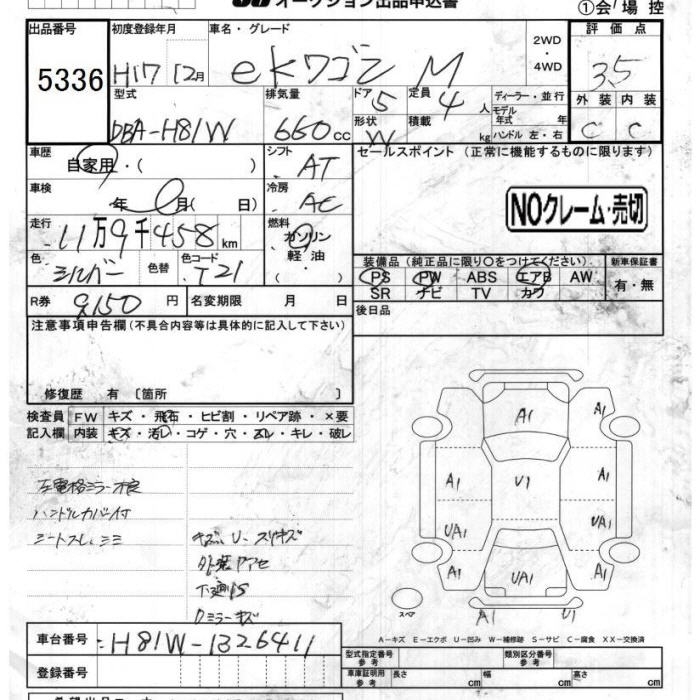 オークション出品申込書
①会場控
出品番号 初度登録年月 車名・グレード 2WD・4WD 評価点
5336 H17 12月 eKワゴン M 3.5
型式 排気量 ドア 5 定員 4人 ディーラー・並行 外装 内装
DBA-H81W 660cc 形状 W 積載 kg モデル年式 年式 ハンドル 左・右 C C
車歴 自家用・( ) シフト AT セールスポイント (正常に機能するものに限ります)
車検 年 月( 日) 冷房 AC
NOクレーム・売切
走行 11万9千458km 燃料 ガソリン・軽油
色 シルバー 色替 色コード T21
装備品 (純正品に限り○をつけてください) 新車保証書
PS PW ABS エアB AW 有・無
SR ナビ TV カワ
R券 9,150円 名変期限 月 日 後日品
注意事項申告欄 (不具合内容等は具体的に記入して下さい)
修復歴 有 〔箇所 〕
検査員記入欄 FW キズ・飛石・ヒビ割・リペア跡・×要
内装 キズ・汚レ・コゲ・穴・スレ・キレ・破レ
左電格ミラー不良
ハンドルカバー付
シートスレ、シミ
キズ、U、スリキズ
外装アセ
下廻りS
ミラーキズ
A1
A1
A1 U1 A1
UA1 UA1
A1 UA1 A1
スペア A1 U1
A-キズ E-エクボ U-凹み W-補修跡 S-サビ C-腐食 XX-交換済
車台番号 H81W-1326411
型式指定番号 参考 類別区分番号 参考
登録番号 車庫証明用 参考 長さ cm 幅 cm 高さ cm